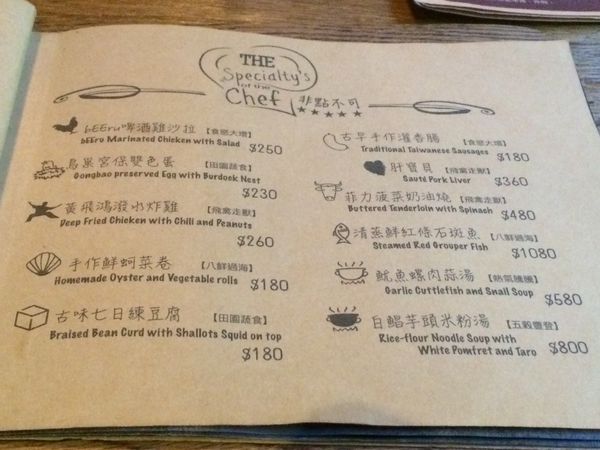 THE
Specialty's
of the
Chef
非點不可
★★★★★
bEEru啤酒雞沙拉 【食慾大增】
bEEru Marinated Chicken with Salad
$250
鳥巢宮保雙色蛋 【田園蔬食】
Gongbao preserved Egg with Burdock Nest
$230
黃飛鴻潑水炸雞 【飛禽走獸】
Deep Fried Chicken with Chili and Peanuts
$260
手作鮮蚵菜卷 【八鮮過海】
Homemade Oyster and Vegetable rolls
$180
古味七日練豆腐 【田園蔬食】
Braised Bean Curd with Shallots Squid on top
$180
古早手作灌香腸 【食慾大增】
Traditional Taiwanese Sausages
$180
肝寶貝 【飛禽走獸】
Sauté Pork Liver
$360
菲力菠菜奶油燒 【飛禽走獸】
Buttered Tenderloin with Spinach
$480
清蒸鮮紅條石斑魚 【八鮮過海】
Steamed Red Grouper Fish
$1080
魷魚螺肉蒜湯 【熱氣騰騰】
Garlic Cuttlefish and Snail Soup
$580
白鯧芋頭米粉湯 【五穀豐登】
Rice-flour Noodle Soup with
White Pomfret and Taro
$800